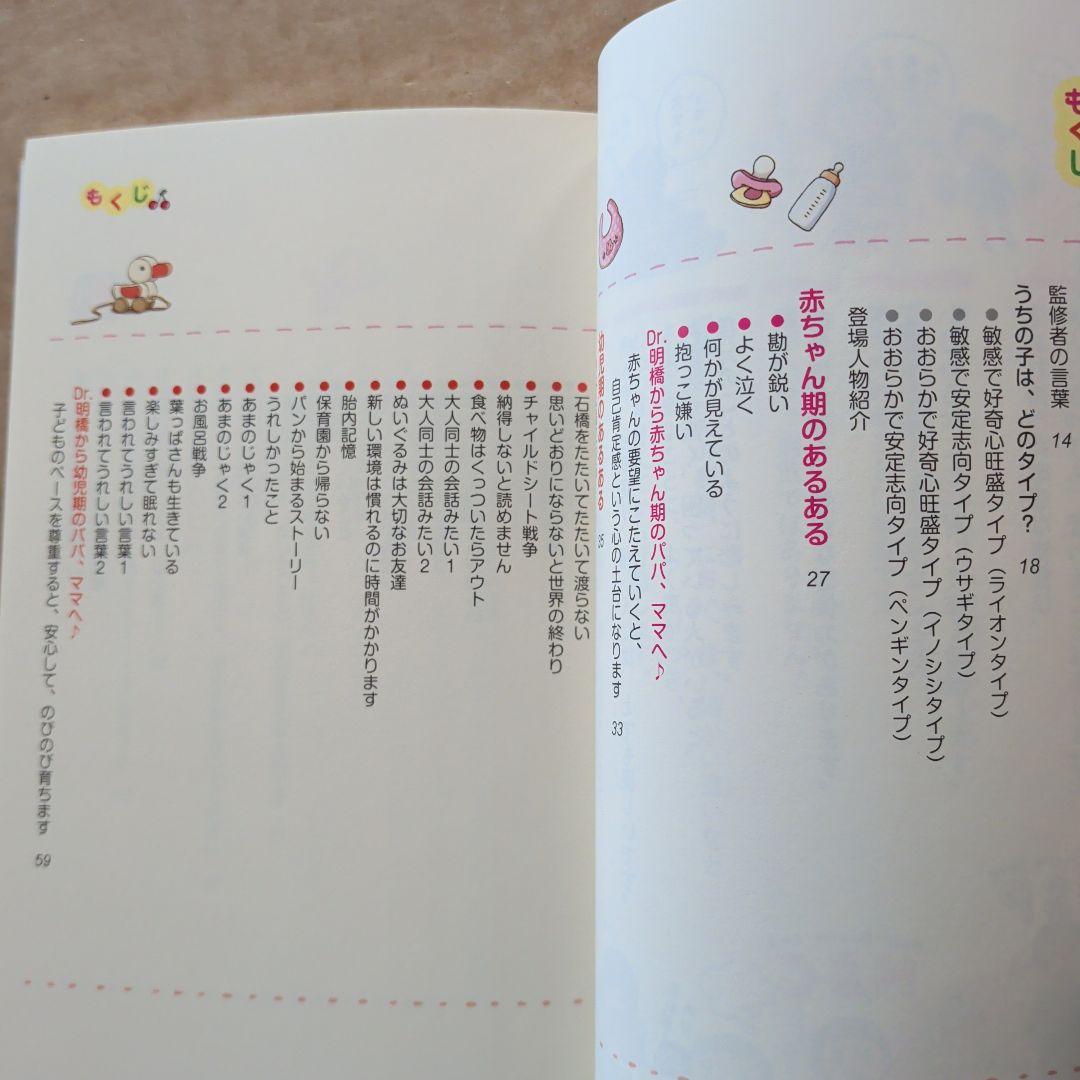 もくじ
監修者の言葉 14
うちの子は、どのタイプ? 18
●敏感で好奇心旺盛タイプ(ライオンタイプ)
●敏感で安定志向タイプ(ウサギタイプ)
●おおらかで好奇心旺盛タイプ(イノシシタイプ)
●おおらかで安定志向タイプ(ペンギンタイプ)
登場人物紹介
赤ちゃん期のあるある 27
●勘が鋭い
●よく泣く
●何かが見えている
●抱っこ嫌い
Dr.明橋から赤ちゃん期のパパ、ママへ♪
赤ちゃんの要望にこたえていくと、
自己肯定感という心の土台になります 33
幼児期のあるある 35
もくじ
●石橋をたたいてたたいて渡らない
●思いどおりにならないと世界の終わり
●チャイルドシート戦争
●納得しないと読めません
●食べ物はくっついたらアウト
●大人同士の会話みたい1
●大人同士の会話みたい2
●ぬいぐるみは大切なお友達
●新しい環境は慣れるのに時間がかかります
●胎内記憶
●保育園から帰らない
●パンから始まるストーリー
●うれしかったこと
●あまのじゃく1
●あまのじゃく2
●お風呂戦争
●葉っぱさんも生きている
●楽しみすぎて眠れない
●言われてうれしい言葉1
●言われてうれしい言葉2
Dr.明橋から幼児期のパパ、ママへ♪
子どものペースを尊重すると、安心して、のびのび育ちます 59